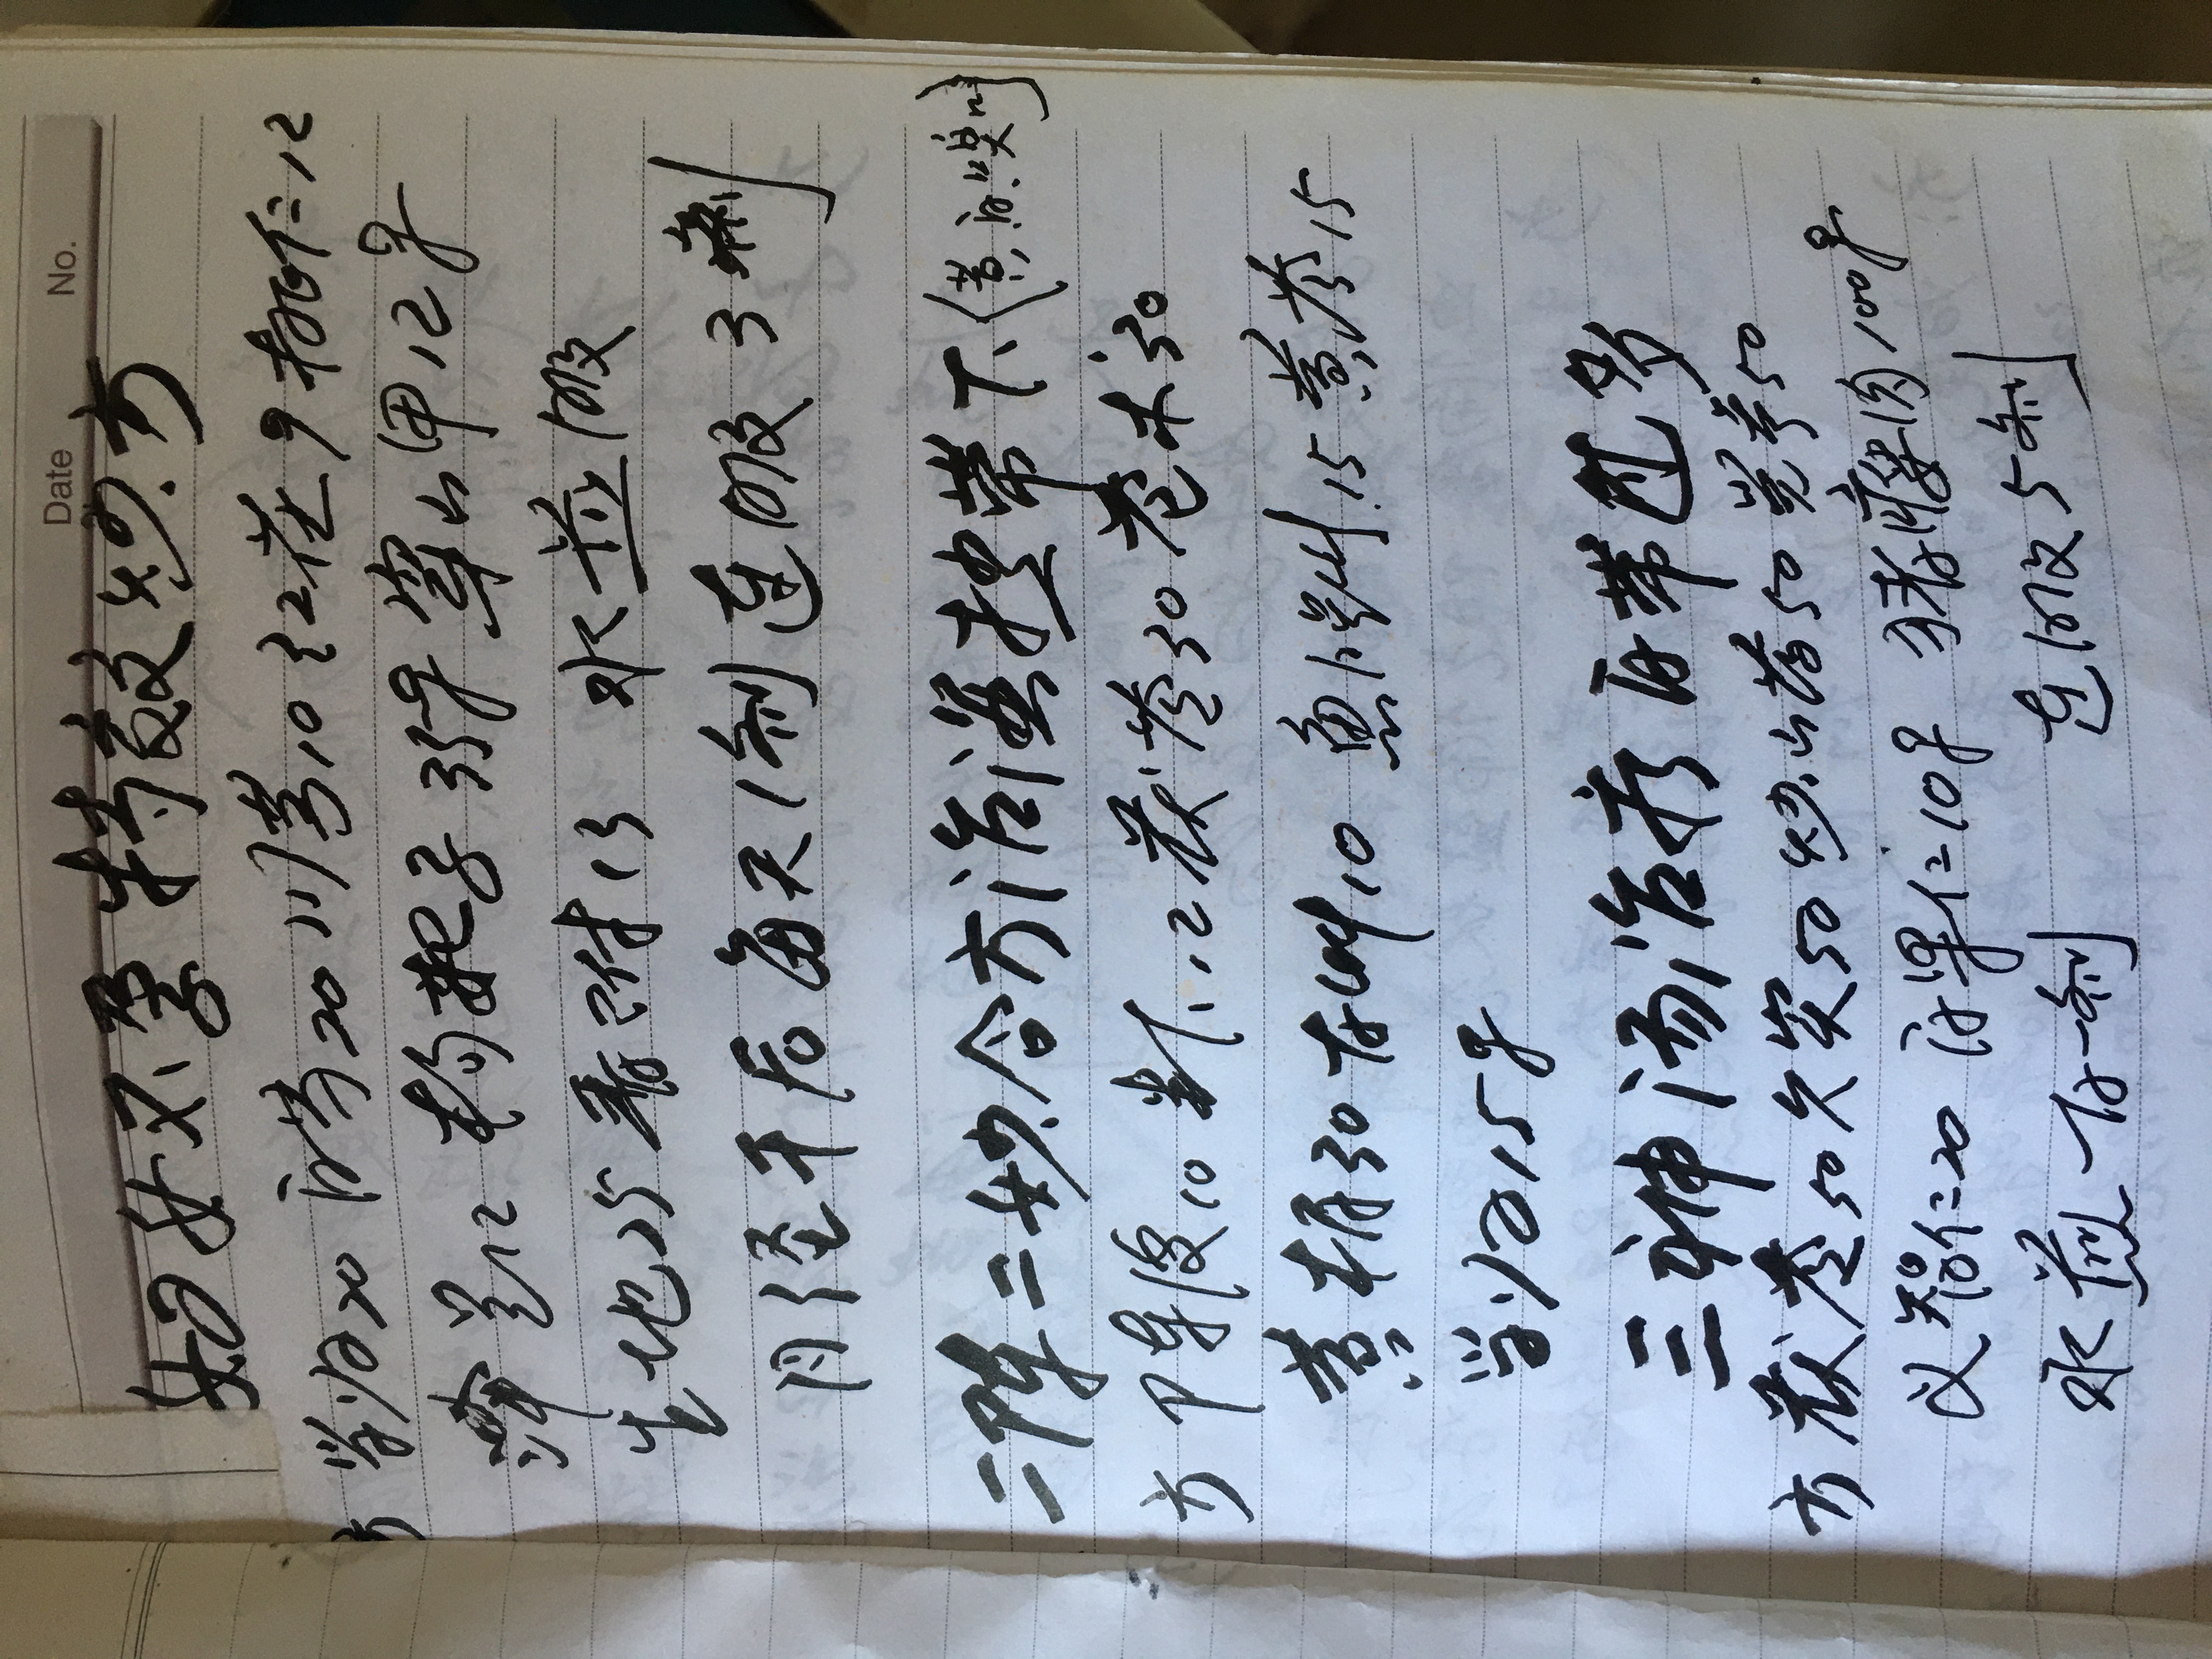 Date No.
妇女不孕特效妙方
方 当归20 白芍20 川芎10 红花9 桃仁12
泽兰12 枸杞子35g 穿山甲12g
生地25 香附13 水煎服
月经干后每天1剂连服3剂
二陈二妙合方治湿热带下(黄白臭)
方 陈皮10 半下12 茯苓30 苍术30
黄柏30 甘草10 鱼腥草15 黄芩15
当归15g
三神汤治疗白带过多
方 茯苓50 欠实50 炒山药50 党参50
义智仁20 白果仁10g 猪瘦肉100g
水煎一日一剂 连服5剂